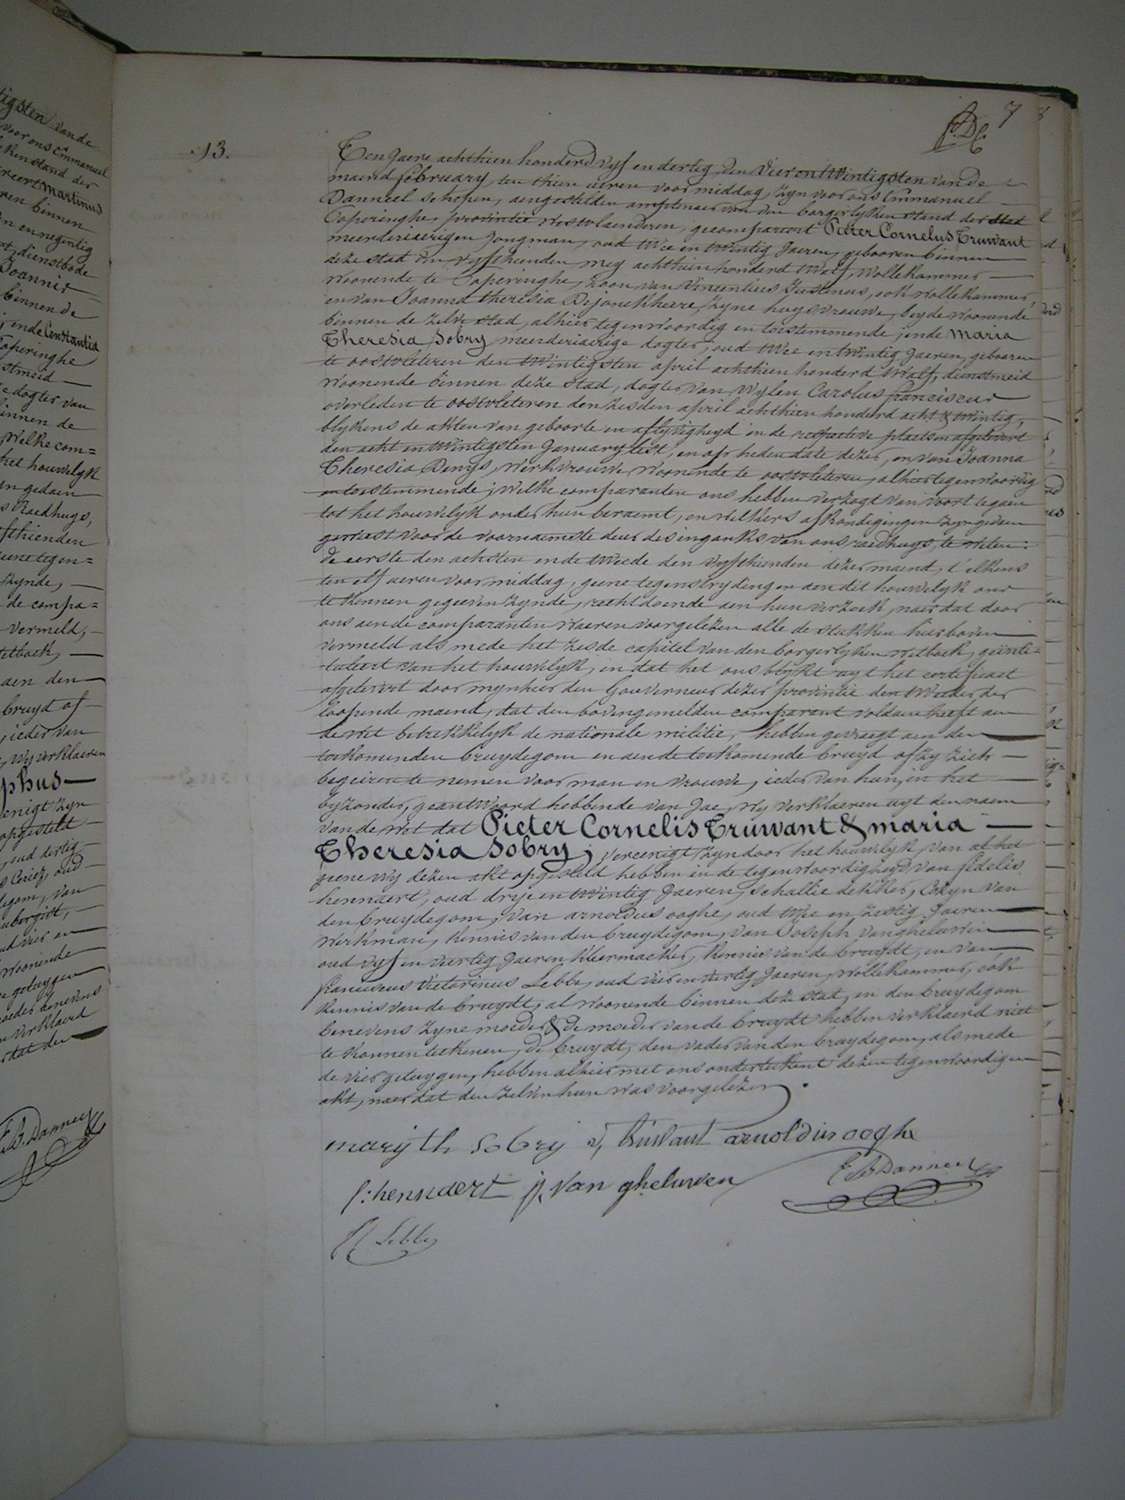 tigsten van de
voor ons Emmanuel
stand der
martinus
binnen
en negentig
dienstbode
Joannes
binnen de
ende Constantia
Poperinghe
dogter van
binnen de
welke com=
het houwelyk
gedaen
s Raedhuys,
geene tegen=
zynde,
de compa=
vermeld,
wetboek,
aen den
bruyd of
ieder van
wy verklaeren
phus
eenigt zyn
opgesteld
oud dertig
oud
van
oud vier en
woonende
getuygen
moeder benevens
verklaerd
dat de
E. B. Danneel
7
13.
Ten Jaere achthien honderd vyf en dertig, den vier en twintigsten van de
maend february, ten thien ueren voor middag, zyn voor ons Emmanuel
Danneel schepen, aengestelden amptenaer van den borgerlyken stand der stad
Poperinghe, provintie Westvlaenderen, gecompareert Pieter Cornelius Truwant
meerderjaerigen Jongman, oud twee en twintig Jaeren, gebooren binnen
deze stad den vyfthienden mey achthien honderd twelf, wollekammer
woonende te Poperinghe, zoon van Vincentius Justinus, ook wollekammer,
en van Joanna theresia Dejonckheere, zyne huysvrouwe, beyde woonende
binnen de zelve stad, alhier tegenwoordig en toestemmende; ende maria
Theresia Sobry, meerderjaerige dogter, oud twee en twintig Jaeren, gebooren
te oostvleteren den twintigsten april achthien honderd twalf, dienstmeid
woonende binnen deze stad, dogter van wylen Carolus franciscus
overleden te oostvleteren den zesden april achthien honderd acht & twintig,
blykens de akten van geboorte en aflyvigheyd in de respective plaetsen afgelevert
den acht en twintigsten January lest, en op heden date dezer, en van Joanna
Theresia Denys, werkvrouwe, woonende te oostvleteren, alhier tegenwoordig
en toestemmende; welke comparanten ons hebben verzogt van voort te gaen
tot het houwelyk onder hun beraemt, en welkers afkondigingen zyn gedaen
geweest voor de voornaemste deur des ingangs van ons raedhuys, te weten:
de eerste den achsten en de tweede den vyfthienden dezer maend, t' elkens
ten elf ueren voor middag, geene tegenstrydingen aen dit houwelyk ons
te kennen gegeeven zynde, recht doende aen hun verzoek, naer dat door
ons aen de comparanten waeren voorgelezen alle de stukken hierboven
vermeld als mede het zesde capitel van den borgerlyken wetboek, geinti-
tuleert van het houwelyk, en dat het ons blykt uyt het certificaet
afgelevert door mynheer den Gouverneur dezer provintie den tweeden der
loopende maend, dat den bovengemelden comparant voldaen heeft aen
de wet betrekkelyk de nationale militie, hebben gevraegt aen den
toekomenden bruydegom en aen de toekomende bruyd of zy zich
begeiren te nemen voor man en vrouwe, ieder van hun, in het
byzonder, geantwoord hebbende van Jae, wy verklaeren uyt den naem
van de wet dat Pieter Cornelis Truwant & maria
Theresia Sobry, vereenigt zyn door het houwelyk, van al het
geene wy dezen akt opgesteld hebben in de tegenwoordigheyd van fidelis
hennaert, oud drij en twintig Jaeren, schallie dekker, cozyn van
den bruydegom, van arnoldus ooghe, oud twee en zestig Jaeren
werkman, kennis van den bruydegom, van Joseph vanghelüwen
oud vyf en veertig Jaeren, kleermaeker, kennis van de bruydt, en van
franciscus Victorinus Lebbe, oud vier en dertig Jaeren, wollekammer, ook
kennis van de bruydt, al woonende binnen deze stad, en den bruydegom
benevens zyne moeder & de moeder van de bruydt hebben verklaerd niet
te konnen teekenen, de bruydt, den vader van den bruydegom, als mede
de vier getuygen, hebben alhier met ons onderteekent dezen tegenwoordigen
akt, naer dat den zelven hun was voorgelezen.
marÿ th sobrÿ v, truwant arnoldus ooghe
f: hennaert j, van gheluwen E B Danneel
Lebbe